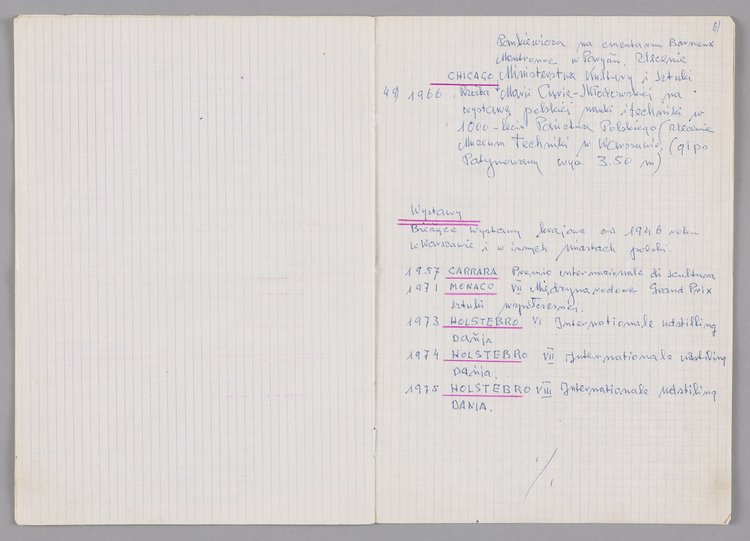 6)
Pankiewicza na cmentarzu Barneux
Montrouve w Paryżu. Zlecenie
CHICAGO Ministerstwa Kultury i Sztuki
49) 1966 Rzeźba "Marii Curie-Skłodowskiej na
wystawę polskiej nauki i techniki w
1000-lecie Państwa Polskiego (zlecenie
Muzeum Techniki w Warszawie, (gips
Patynowany wys. 3.50 m)
Wystawy
Bieżące Wystawy krajowe od 1946 roku
w Warszawie i w innych miastach polski.
1957 CARRARA Premio internazionale di scultura
1971 MONACO VII Międzynarodowe Grand Prix
sztuki współczesnej.
1973 HOLSTEBRO VI Internationale udstilling
Dańja
1974 HOLSTEBRO VII Internationale udstilling
DAńja.
1975 HOLSTEBRO VIII Internationale udstilling
DANIA.
./.